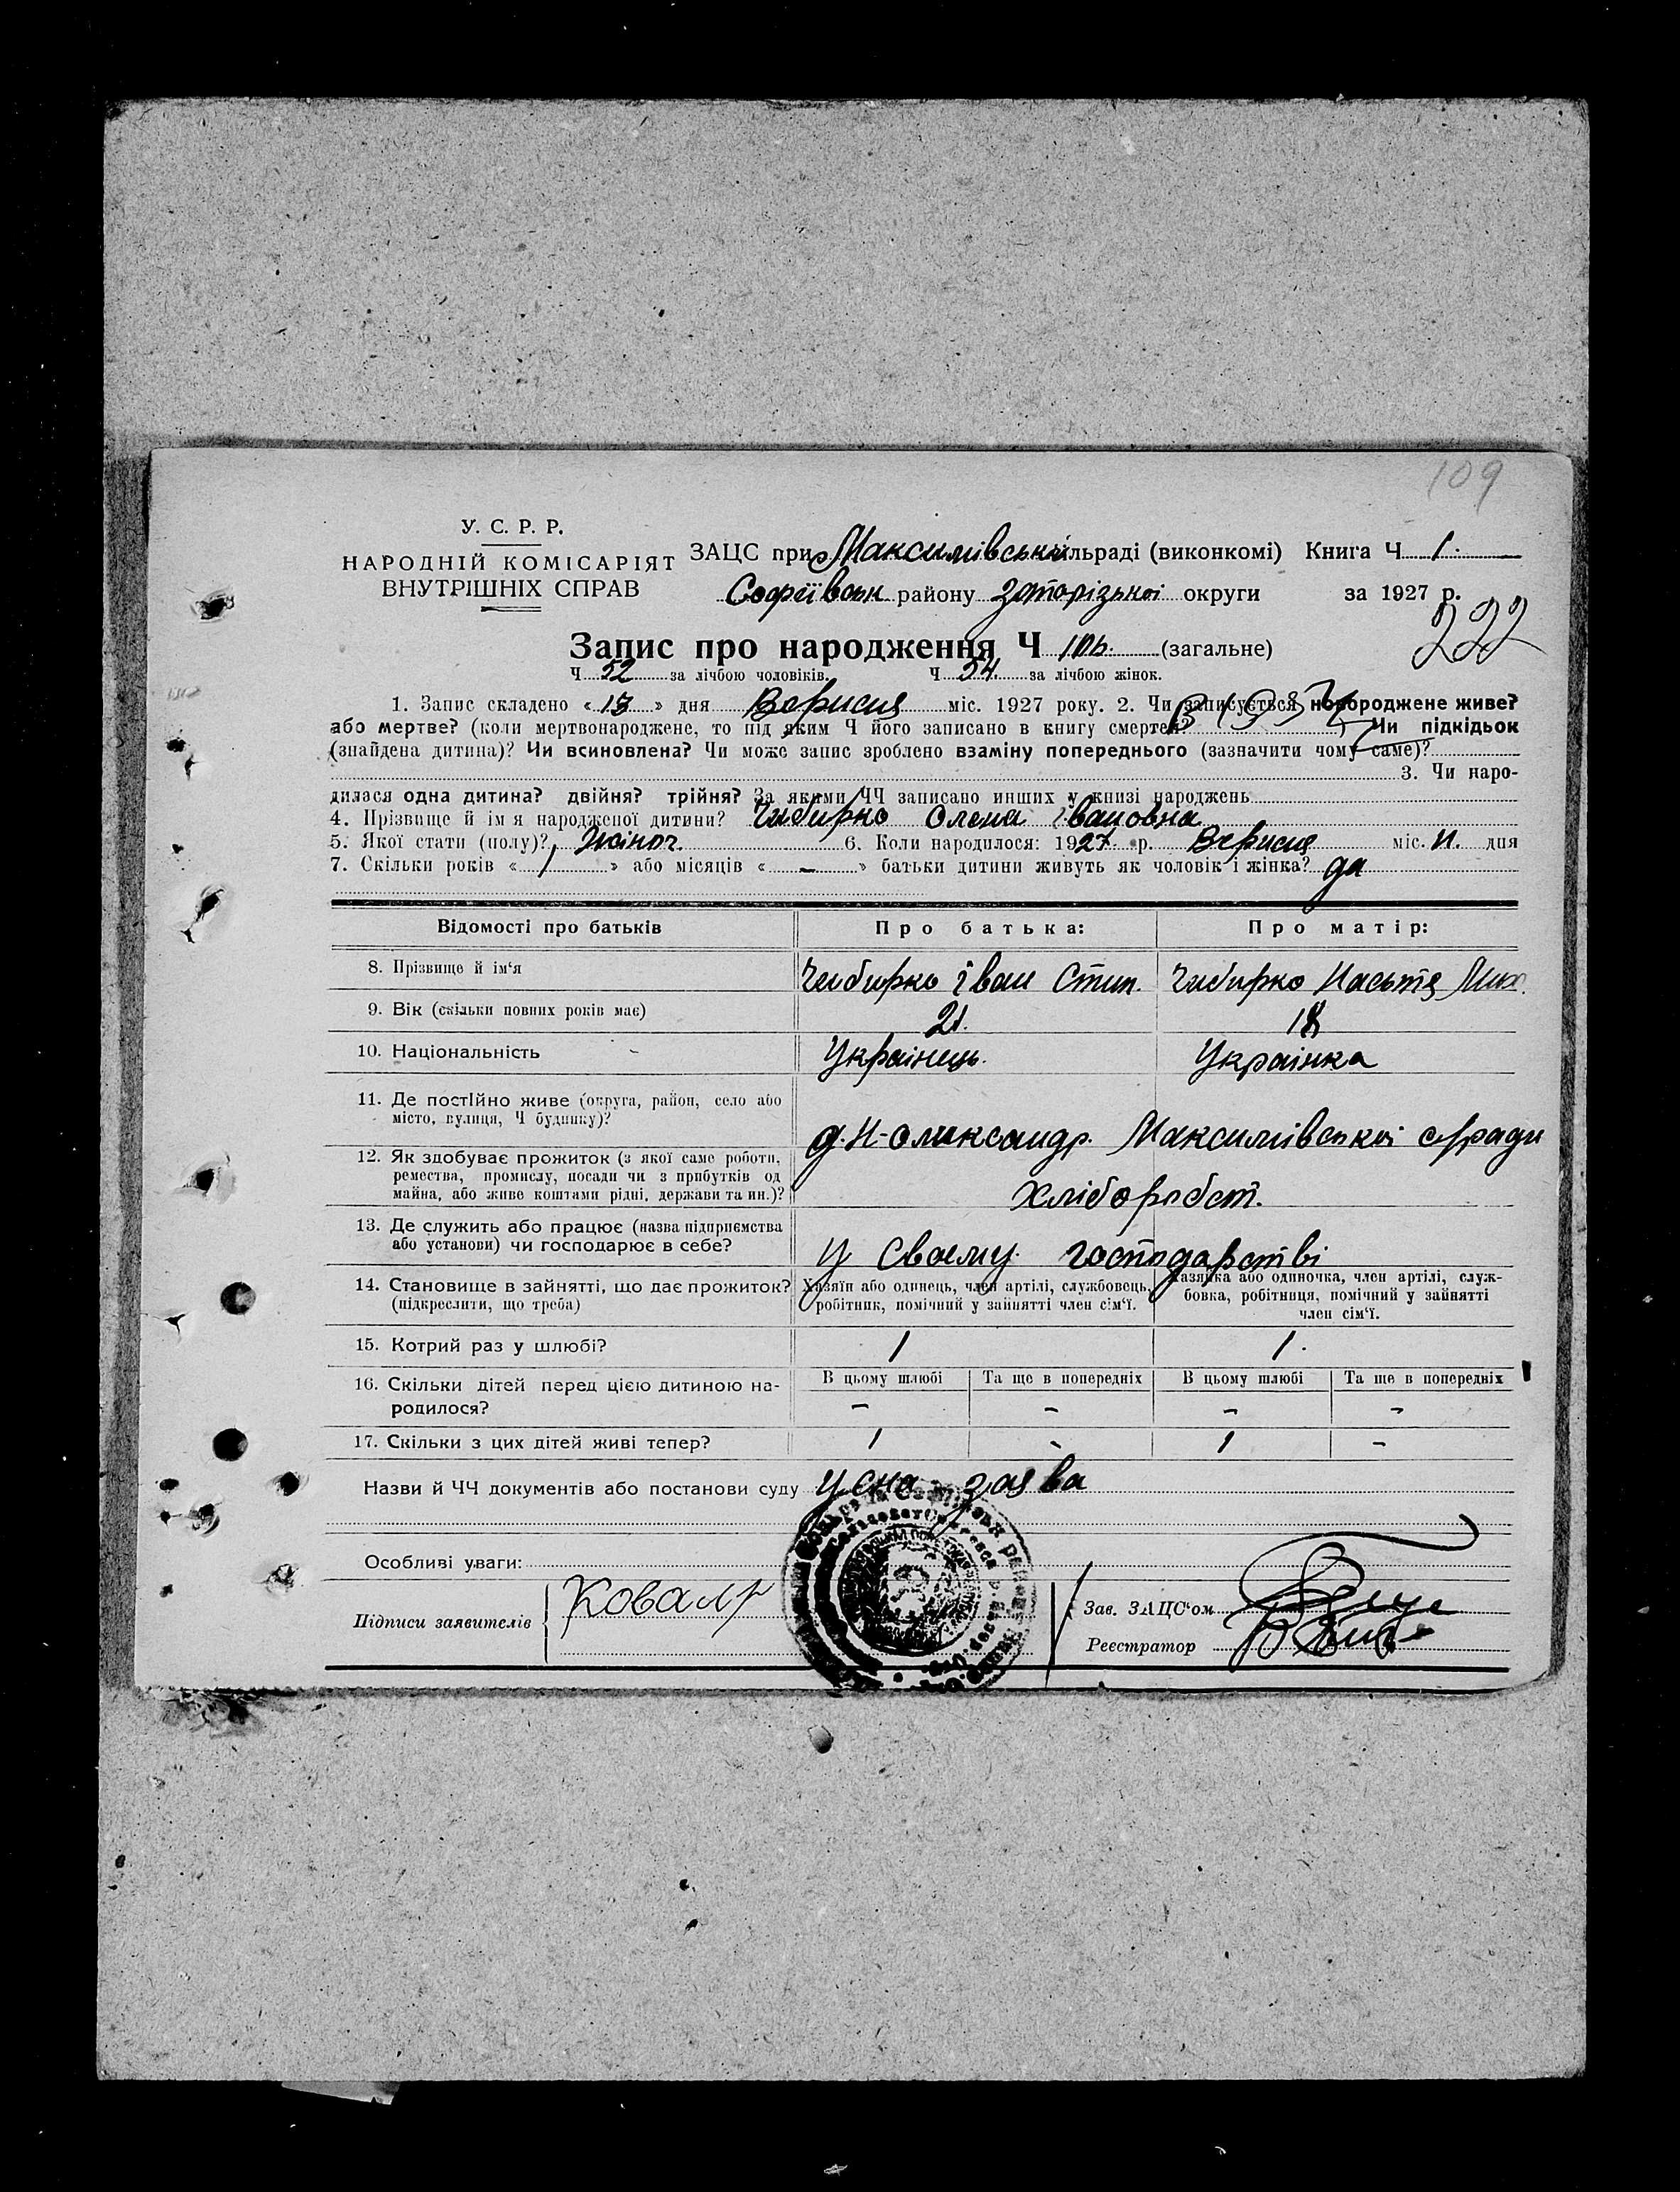 109
У. С. Р. Р.
НАРОДНІЙ КОМІСАРІЯТ
ВНУТРІШНІХ СПРАВ
ЗАЦС при Максимівській сільраді (виконкомі) Книга Ч 1.
Софіївськ району Запорізької округи за 1927 р.
222
Запис про народження Ч 106. (загальне)
Ч 52 за лічбою чоловіків. Ч 54. за лічбою жінок.
1. Запис складено « 13 » дня Вересня міс. 1927 року. 2. Чи записується новороджене живе?
або мертве? (коли мертвонароджене, то під яким Ч його записано в книгу смертей? ) Чи підкідьок
(знайдена дитина)? Чи всиновлена? Чи може запис зроблено взаміну попереднього (зазначити чому саме)?
3. Чи наро-
дилася одна дитина? двійня? трійня? За якими ЧЧ записано инших у книзі народжень
4. Прізвище й ім я народженої дитини? Чибирко Олена Івановна
5. Якої стати (полу)? Жіноч. 6. Коли народилося: 1927 р. Вересня міс. 11. дня
7. Скільки років « 1 » або місяців « – » батьки дитини живуть як чоловік і жінка? да
Відомості про батьків Про батька: Про матір:
8. Прізвище й ім‘я Чибирко Іван Стип. Чибирко Насьтя Мих.
9. Вік (скільки повних років має) 21. 18
10. Національність Українець. Українка
11. Де постійно живе (округа, район, село або
місто, вулиця, Ч будинку)? д. Н-Олександр. Максимівської с/ради
12. Як здобуває прожиток (з якої саме роботи,
ремества, промислу, посади чи з прибутків од
майна, або живе коштами рідні, держави та ин.)? Хлібор
13. Де служить або працює (назва підприємства
або установи) чи господарює в себе? у Своему господарстві
14. Становище в зайнятті, що дає прожиток? (підкреслити, що треба)
Хазяїн або одинець, член артілі, службовець,
робітник, помічний у зайнятті член сім‘ї.
Хазяйка або одиночка, член артілі, служ-
бовка, робітниця, помічний у зайнятті
член сім‘ї.
15. Котрий раз у шлюбі? 1 1.
16. Скільки дітей перед цією дитиною на-
родилося?
В цьому шлюбі Та ще в попередніх В цьому шлюбі Та ще в попередніх
– – – –
17. Скільки з цих дітей живі тепер? 1 - 1 –
Назви й ЧЧ документів або постанови суду усна заява
Особливі уваги:
Підписи заявителів Коваль
Зав. ЗАЦС‘ом
Реєстратор